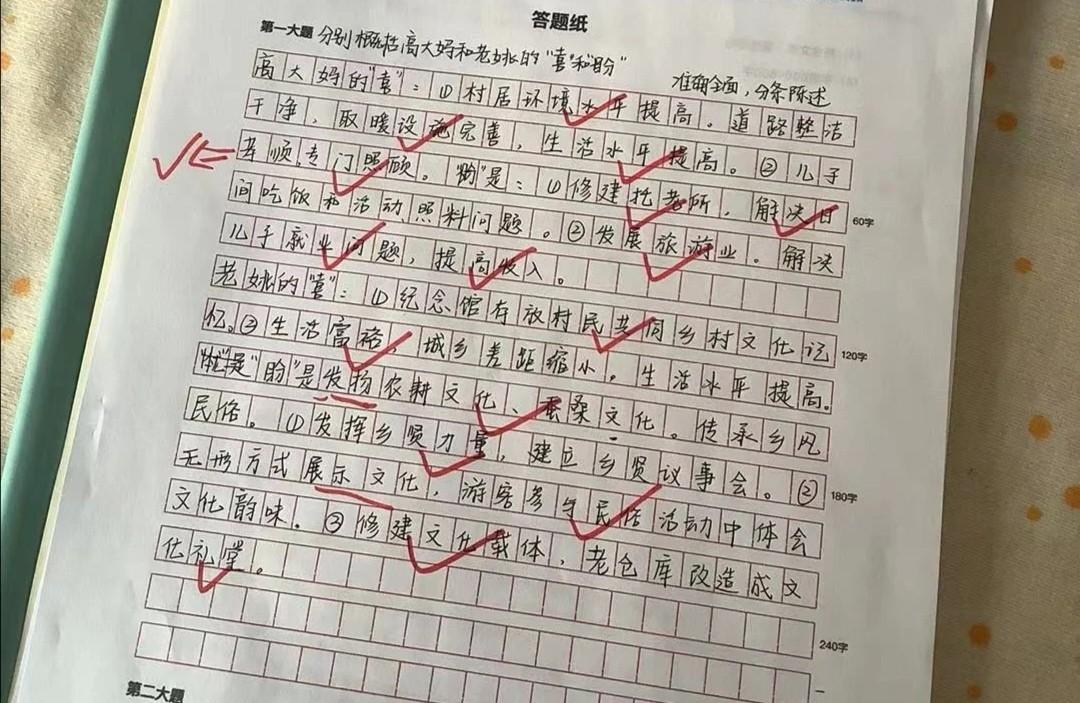 答题纸
第一大题 分别概括高大妈和老姚的"喜"和"盼"
准确全面,分条陈述
高大妈的"喜":①村居环境水平提高。道路整洁
干净,取暖设施完善,生活水平提高。②儿子
孝顺,专门照顾。"盼"是:①修建托老所,解决日
60字
间吃饭和活动照料问题。②发展旅游业。解决
儿子就业问题,提高收入。
老姚的"喜":①纪念馆存放村民共同乡村文化记
120字
忆。②生活富裕,城乡差距缩小。生活水平提高。
"盼"是发扬农耕文化、蚕桑文化。传承乡风
民俗。①发挥乡贤力量,建立乡贤议事会。②
180字
无形方式展示文化,游客参与民俗活动中体会
文化韵味。③修建文化载体,老仓库改造成文
化礼堂。
240字
第二大题